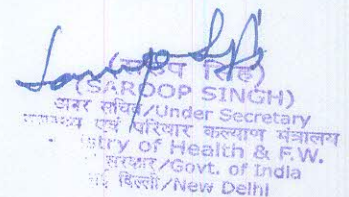 सिंह)
(SAROOP SINGH)
अवर सचिव/Under Secretary
एवं परिवार कल्याण मंत्रालय
istry of Health & F.W.
सरकार/Govt. of India
नई दिल्ली/New Delhi